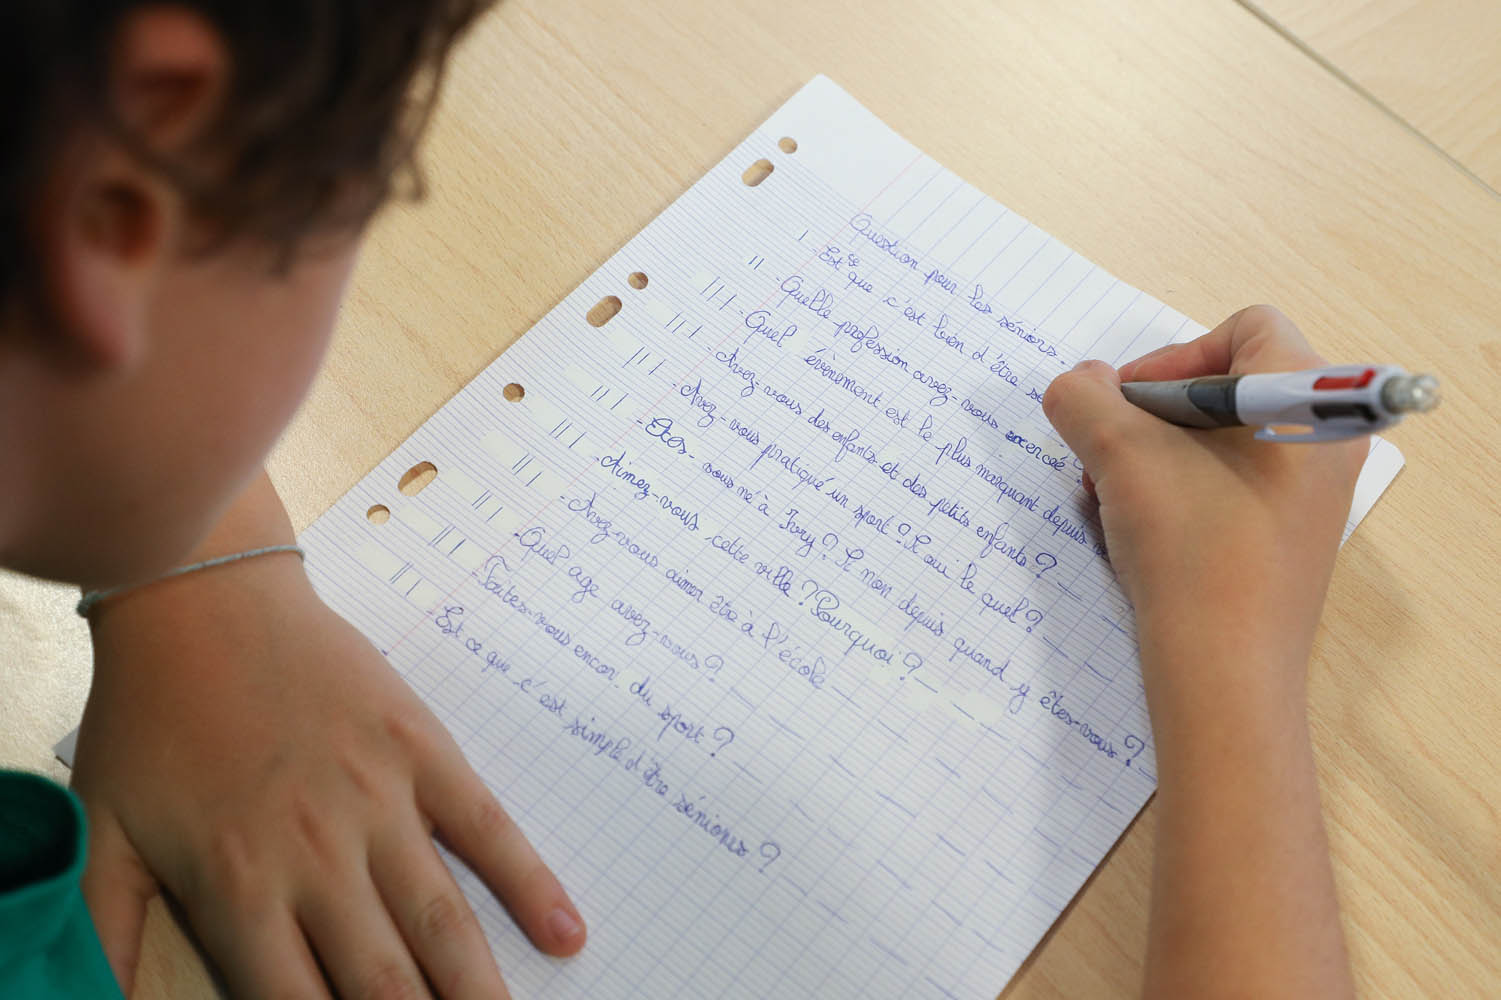 Question pour les séniors.
- Est ce que c'est bien d'être
- Quelle profession avez-vous excercée ?
- Quel évènement est le plus marquant depuis
- Avez-vous des enfants et des petits enfants ?
- Avez-vous pratiqué un sport ? Si oui le quel ?
- Etes-vous né à Ivry ? Si non depuis quand y êtes-vous ?
- Aimez-vous cette ville ? Pourquoi ?
- Avez-vous aimer être à l'école
- Quel age avez-vous ?
- Faites-vous encor du sport ?
- Est ce que c'est simple d'être séniors ?